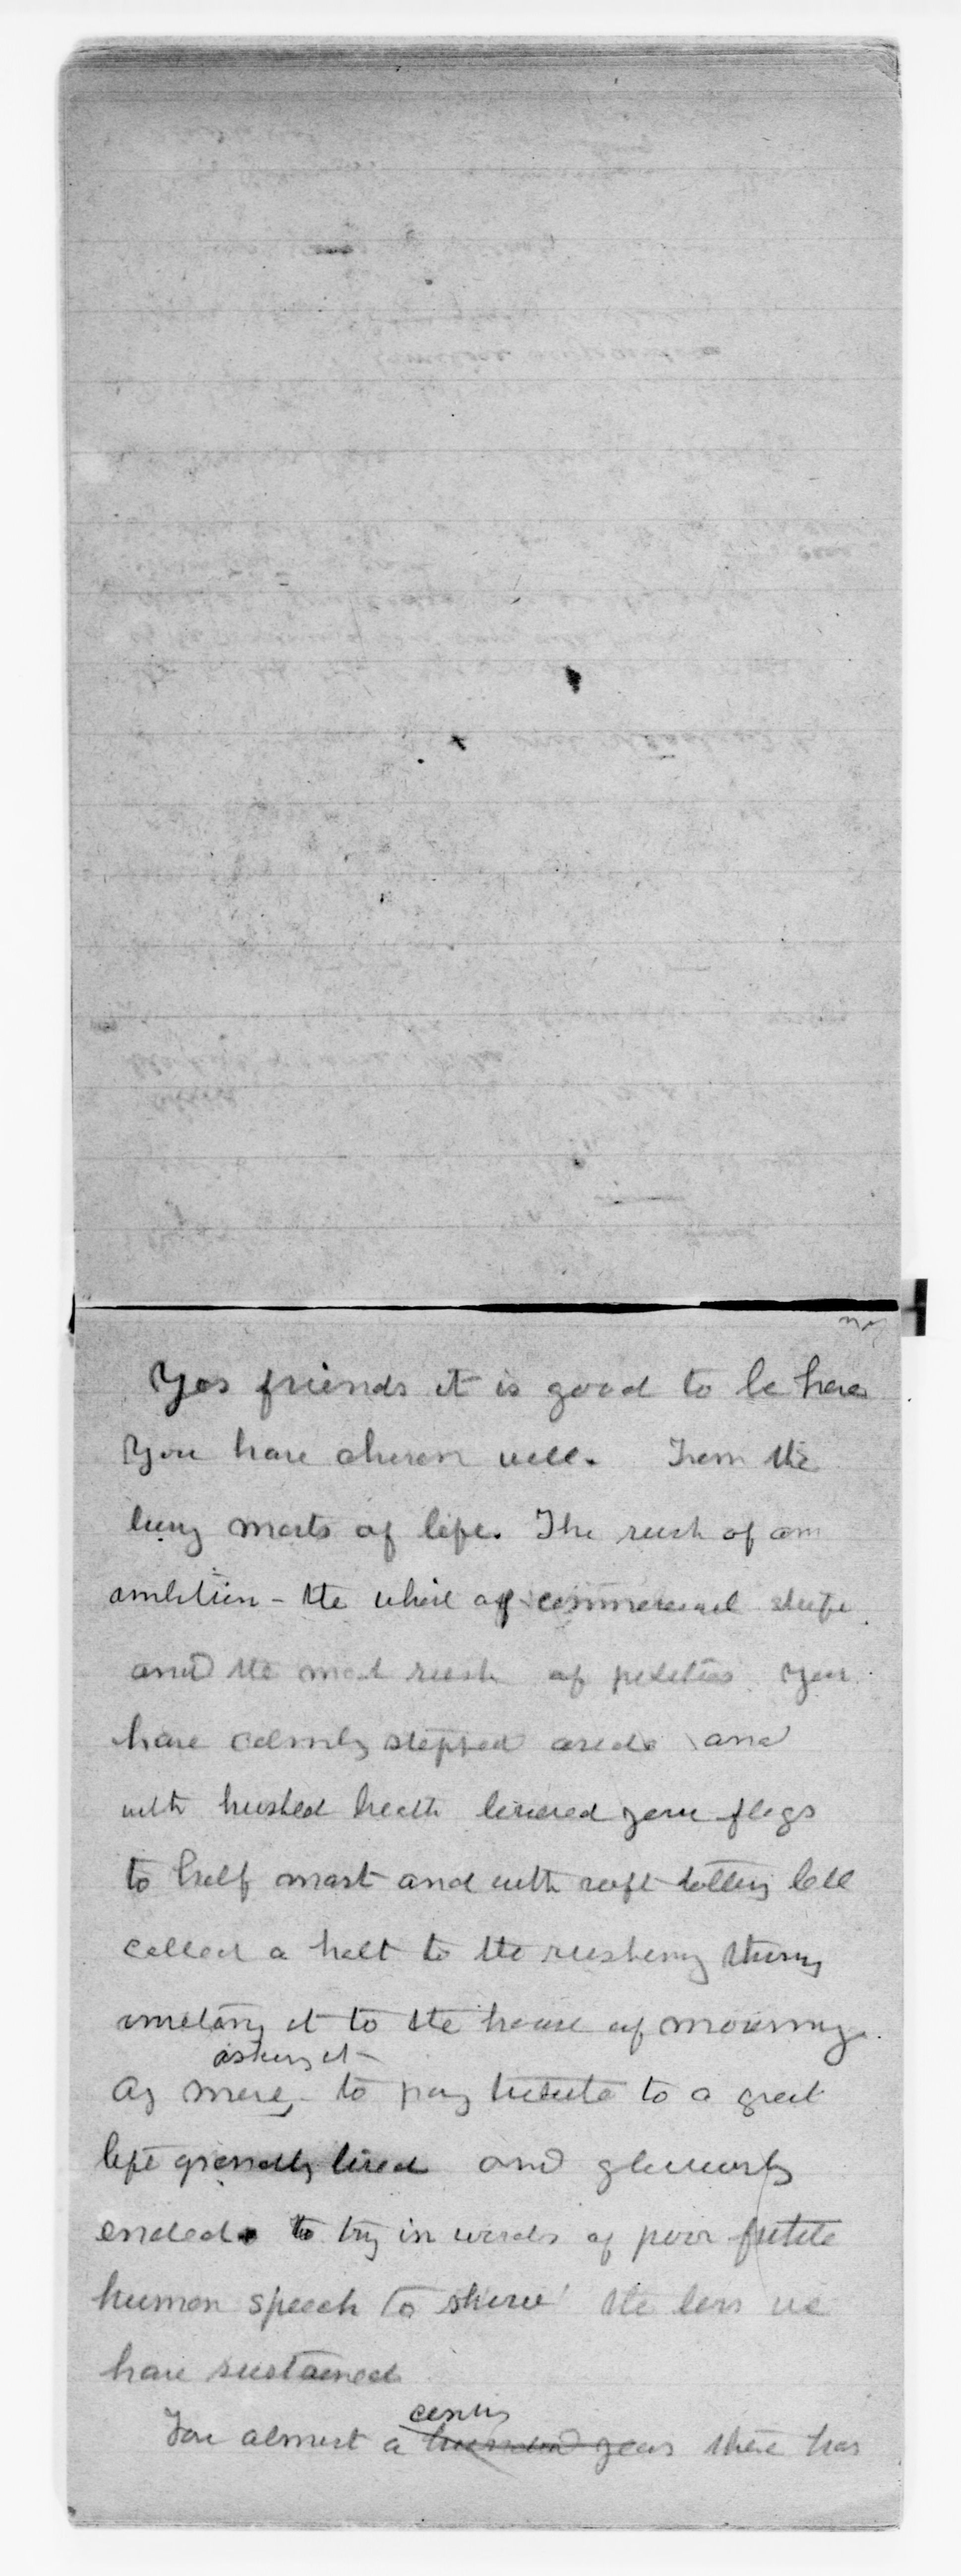 Yes friends it is good to be here
You have chosen well. From the
busy marts of life. The rush of am
ambition - the whirl of commercial strife
and the mad rush of politics you
have calmly stepped aside and
with hushed breath lowered your flags
to half mast and with soft tolling bell
called a halt to the rushing throng
inviting it to the house of mourning.
asking it
Ay more, to pay tribute to a great
life grandly lived and gloriously
ended. to try in words of poor futile
human speech to show the loss we
have sustained
century
For almost a hundred years there has